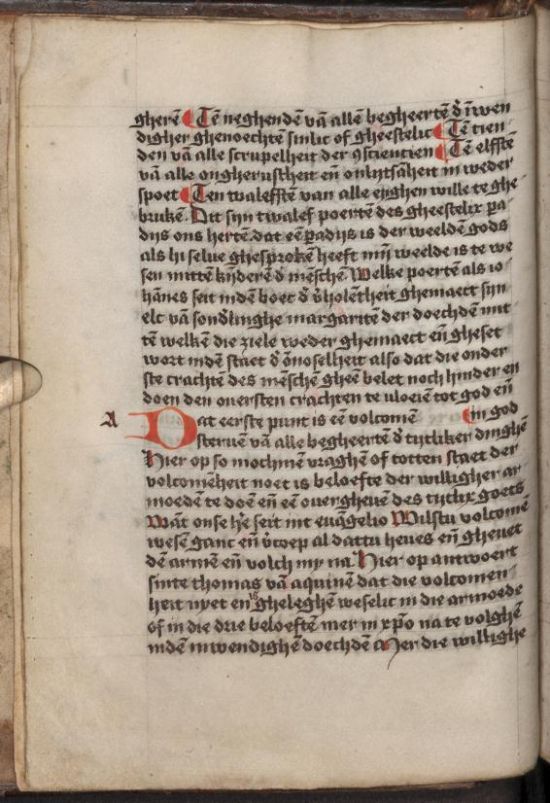 gherē ¶ Tē neghendē vā allē begheertē d̄ īwen
digher ghenoechtē sinlic of gheestelic ¶ Tē tien
den vā alle scrupelheit der ꝯsciencien ¶ Tē elfftē
vā alle ongherustheit eñ onlytsāheit in weder
spoet ¶ Ten twalefftē van alle eyghen wille te ghe
brukē. Dit sijn twalef poertē des gheestelix pa
dijs ons hertē. dat eē p̄adijs is der weeldē gods
als hi selue ghesprokē heeft mijn weelde is te we
sen mittē kijderē d̄ mēschē Welke poertē als io
hānes seit indē boec d̄ v̄holentheit ghemaect sijn
elc vā sond̄linghe margaritē der doechdē mit
tē welkē die ziele weder ghemaect eñ gheset
wort indē staet d̄ ōnoselheit also dat die onder
ste crachtē des mēschē gheē belet noch hinder en
doen den ouersten crachten te vloeiē tot god eñ
A Dat eerste punt is eē volcomē ¶ in god
steruē vā alle begheertē d̄ tijtliker dinghē
Hier op so mochmen vraghē of totten staet der
volcomēheit noet is beloefte der willigher ar
moedē te doē eñ eē ouergheuē des tijtlix goets
Want onse h̄e seit int euāgelio Wilstu volcomē
wesē ganc eñ v̄coep al dattu heues eñ gheuet
dē armē eñ volch my na. Hier op antwoert
sinte thomas vā aquinē dat die volcomen
heit nyet en is gheleghē weselic in die armoede
of in die drie beloeftē mer in xp̄o na te volghē
indē inwendighē doechdē Mer die willighe